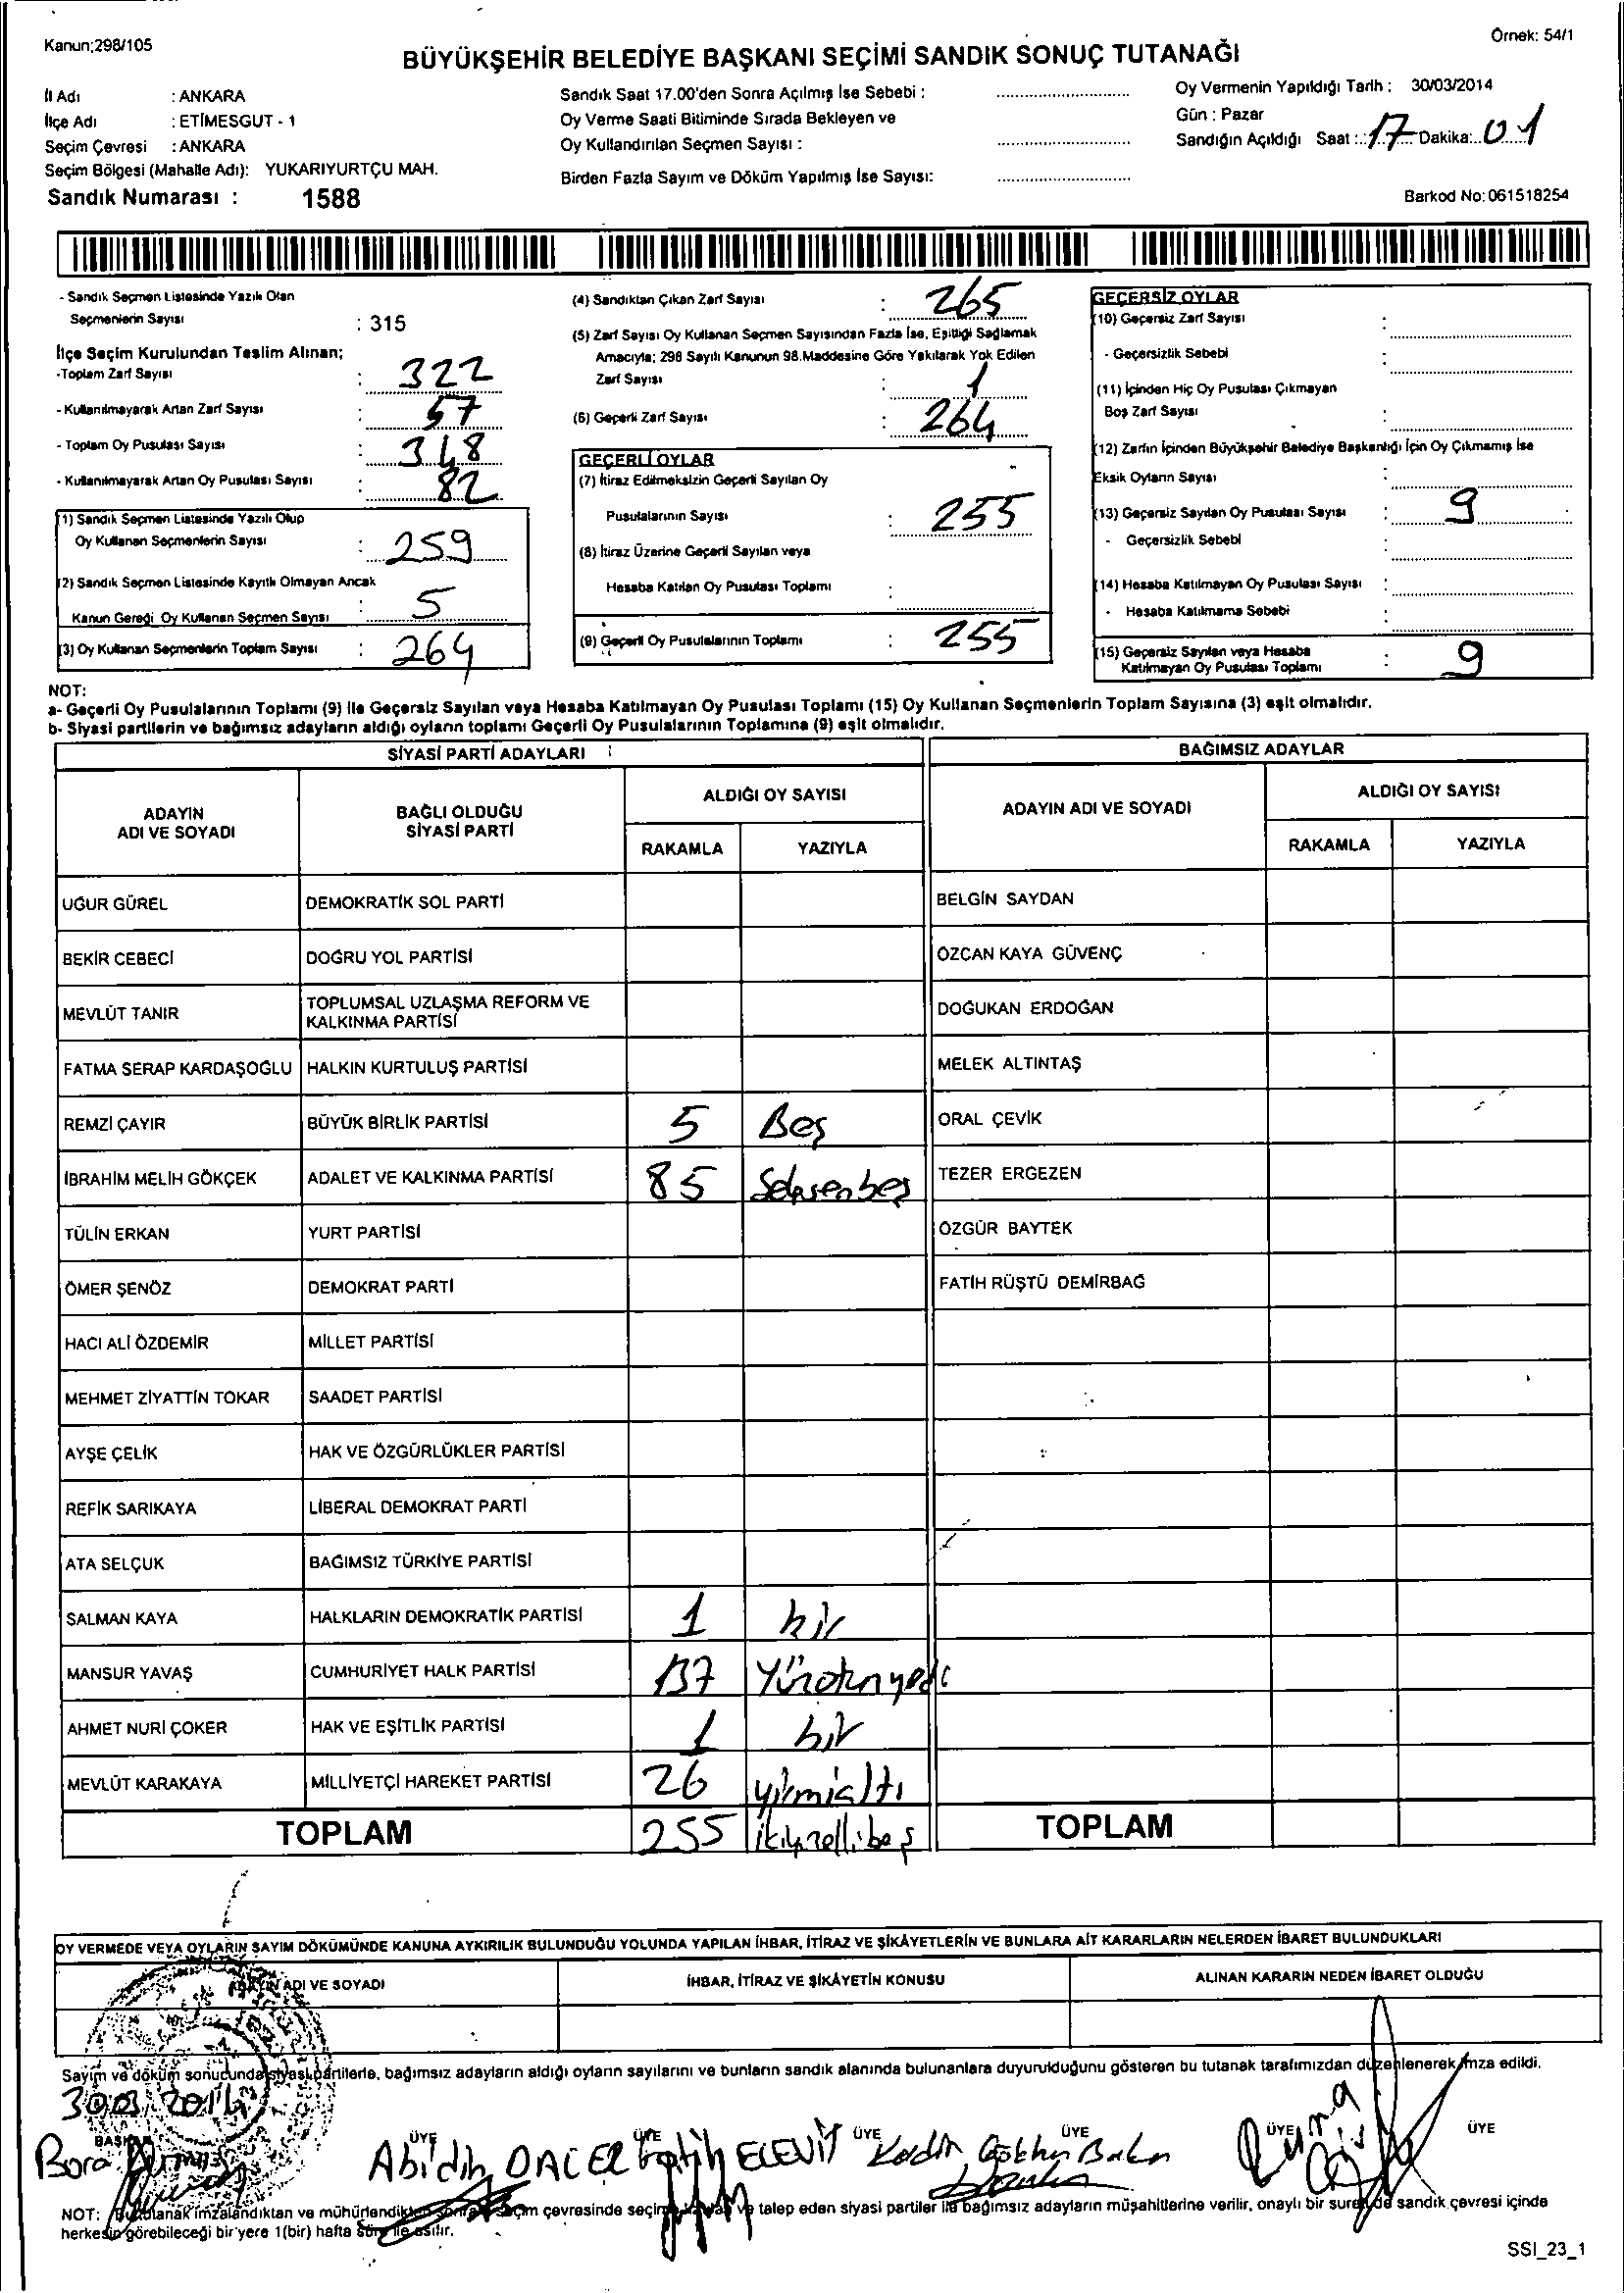 Kanun;298/105
Örnek: 54/1
BÜYÜKŞEHİR BELEDİYE BAŞKANI SEÇİMİ SANDIK SONUÇ TUTANAĞI
İl Adı : ANKARA
İlçe Adı : ETİMESGUT - 1
Seçim Çevresi : ANKARA
Seçim Bölgesi (Mahalle Adı): YUKARIYURTÇU MAH.
Sandık Numarası : 1588
Sandık Saat 17.00'den Sonra Açılmış İse Sebebi :
Oy Verme Saati Bitiminde Sırada Bekleyen ve
Oy Kullandırılan Seçmen Sayısı :
Birden Fazla Sayım ve Döküm Yapılmış İse Sayısı:
Oy Vermenin Yapıldığı Tarih : 30/03/2014
Gün : Pazar
Sandığın Açıldığı Saat : 17 Dakika: 01
Barkod No: 061518254
- Sandık Seçmen Listesinde Yazılı Olan
Seçmenlerin Sayısı : 315
İlçe Seçim Kurulundan Teslim Alınan;
-Toplam Zarf Sayısı : 322
- Kullanılmayarak Artan Zarf Sayısı : 57
- Toplam Oy Pusulası Sayısı : 348
- Kullanılmayarak Artan Oy Pusulası Sayısı : 82
(1) Sandık Seçmen Listesinde Yazılı Olup
Oy Kullanan Seçmenlerin Sayısı : 259
(2) Sandık Seçmen Listesinde Kayıtlı Olmayan Ancak
Kanun Gereği Oy Kullanan Seçmen Sayısı : 5
(3) Oy Kullanan Seçmenlerin Toplam Sayısı : 264
(4) Sandıktan Çıkan Zarf Sayısı : 265
(5) Zarf Sayısı Oy Kullanan Seçmen Sayısından Fazla İse, Eşitliği Sağlamak
Amacıyla; 298 Sayılı Kanunun 98.Maddesine Göre Yakılarak Yok Edilen
Zarf Sayısı : 1
(6) Geçerli Zarf Sayısı : 264
GEÇERLİ OYLAR
(7) İtiraz Edilmeksizin Geçerli Sayılan Oy
Pusulalarının Sayısı : 255
(8) İtiraz Üzerine Geçerli Sayılan veya
Hesaba Katılan Oy Pusulası Toplamı :
(9) Geçerli Oy Pusulalarının Toplamı : 255
GEÇERSİZ OYLAR
(10) Geçersiz Zarf Sayısı :
- Geçersizlik Sebebi :
(11) İçinden Hiç Oy Pusulası Çıkmayan
Boş Zarf Sayısı :
(12) Zarfın İçinden Büyükşehir Belediye Başkanlığı İçin Oy Çıkmamış İse
Eksik Oyların Sayısı :
(13) Geçersiz Sayılan Oy Pusulası Sayısı : 9
- Geçersizlik Sebebi :
(14) Hesaba Katılmayan Oy Pusulası Sayısı :
- Hesaba Katılmama Sebebi :
(15) Geçersiz Sayılan veya Hesaba
Katılmayan Oy Pusulası Toplamı : 9
NOT:
a- Geçerli Oy Pusulalarının Toplamı (9) ile Geçersiz Sayılan veya Hesaba Katılmayan Oy Pusulası Toplamı (15) Oy Kullanan Seçmenlerin Toplam Sayısına (3) eşit olmalıdır.
b- Siyasi partilerin ve bağımsız adayların aldığı oyların toplamı Geçerli Oy Pusulalarının Toplamına (9) eşit olmalıdır.
SİYASİ PARTİ ADAYLARI
BAĞIMSIZ ADAYLAR
ADAYIN
ADI VE SOYADI
BAĞLI OLDUĞU
SİYASİ PARTİ
ALDIĞI OY SAYISI
RAKAMLA YAZIYLA
ADAYIN ADI VE SOYADI
ALDIĞI OY SAYISI
RAKAMLA YAZIYLA
UĞUR GÜREL DEMOKRATİK SOL PARTİ BELGİN SAYDAN
BEKİR CEBECİ DOĞRU YOL PARTİSİ ÖZCAN KAYA GÜVENÇ
MEVLÜT TANIR TOPLUMSAL UZLAŞMA REFORM VE
KALKINMA PARTİSİ DOĞUKAN ERDOĞAN
FATMA SERAP KARDAŞOĞLU HALKIN KURTULUŞ PARTİSİ MELEK ALTINTAŞ
REMZİ ÇAYIR BÜYÜK BİRLİK PARTİSİ 5 Beş ORAL ÇEVİK
İBRAHİM MELİH GÖKÇEK ADALET VE KALKINMA PARTİSİ 85 Seksenbeş TEZER ERGEZEN
TÜLİN ERKAN YURT PARTİSİ ÖZGÜR BAYTEK
ÖMER ŞENÖZ DEMOKRAT PARTİ FATİH RÜŞTÜ DEMİRBAĞ
HACI ALİ ÖZDEMİR MİLLET PARTİSİ
MEHMET ZİYATTİN TOKAR SAADET PARTİSİ
AYŞE ÇELİK HAK VE ÖZGÜRLÜKLER PARTİSİ
REFİK SARIKAYA LİBERAL DEMOKRAT PARTİ
ATA SELÇUK BAĞIMSIZ TÜRKİYE PARTİSİ
SALMAN KAYA HALKLARIN DEMOKRATİK PARTİSİ 1 bir
MANSUR YAVAŞ CUMHURİYET HALK PARTİSİ 137 Yüzotuzyedi
AHMET NURİ ÇOKER HAK VE EŞİTLİK PARTİSİ 1 bir
MEVLÜT KARAKAYA MİLLİYETÇİ HAREKET PARTİSİ 26 yirmialtı
TOPLAM 255 ikiyüzellibeş TOPLAM
OY VERMEDE VEYA OYLARIN SAYIM DÖKÜMÜNDE KANUNA AYKIRILIK BULUNDUĞU YOLUNDA YAPILAN İHBAR, İTİRAZ VE ŞİKÂYETLERİN VE BUNLARA AİT KARARLARIN NELERDEN İBARET BULUNDUKLARI
ADAYIN ADI VE SOYADI İHBAR, İTİRAZ VE ŞİKÂYETİN KONUSU ALINAN KARARIN NEDEN İBARET OLDUĞU
Sayım ve döküm sonucunda siyasi partilerle, bağımsız adayların aldığı oyların sayılarını ve bunların sandık alanında bulunanlara duyurulduğunu gösteren bu tutanak tarafımızdan düzenlenerek imza edildi.
30.03.2014
BAŞKAN ÜYE ÜYE ÜYE ÜYE ÜYE ÜYE
Bora Abidin Fatih ELEVİT Kadir Gökhan
NOT: Bu tutanak imzalandıktan ve mühürlendikten sonra seçim çevresinde seçime katılan ve talep eden siyasi partiler ile bağımsız adayların müşahitlerine verilir, onaylı bir sureti de sandık çevresi içinde
herkesin görebileceği bir yere 1(bir) hafta süre ile asılır.
SSI_23_1